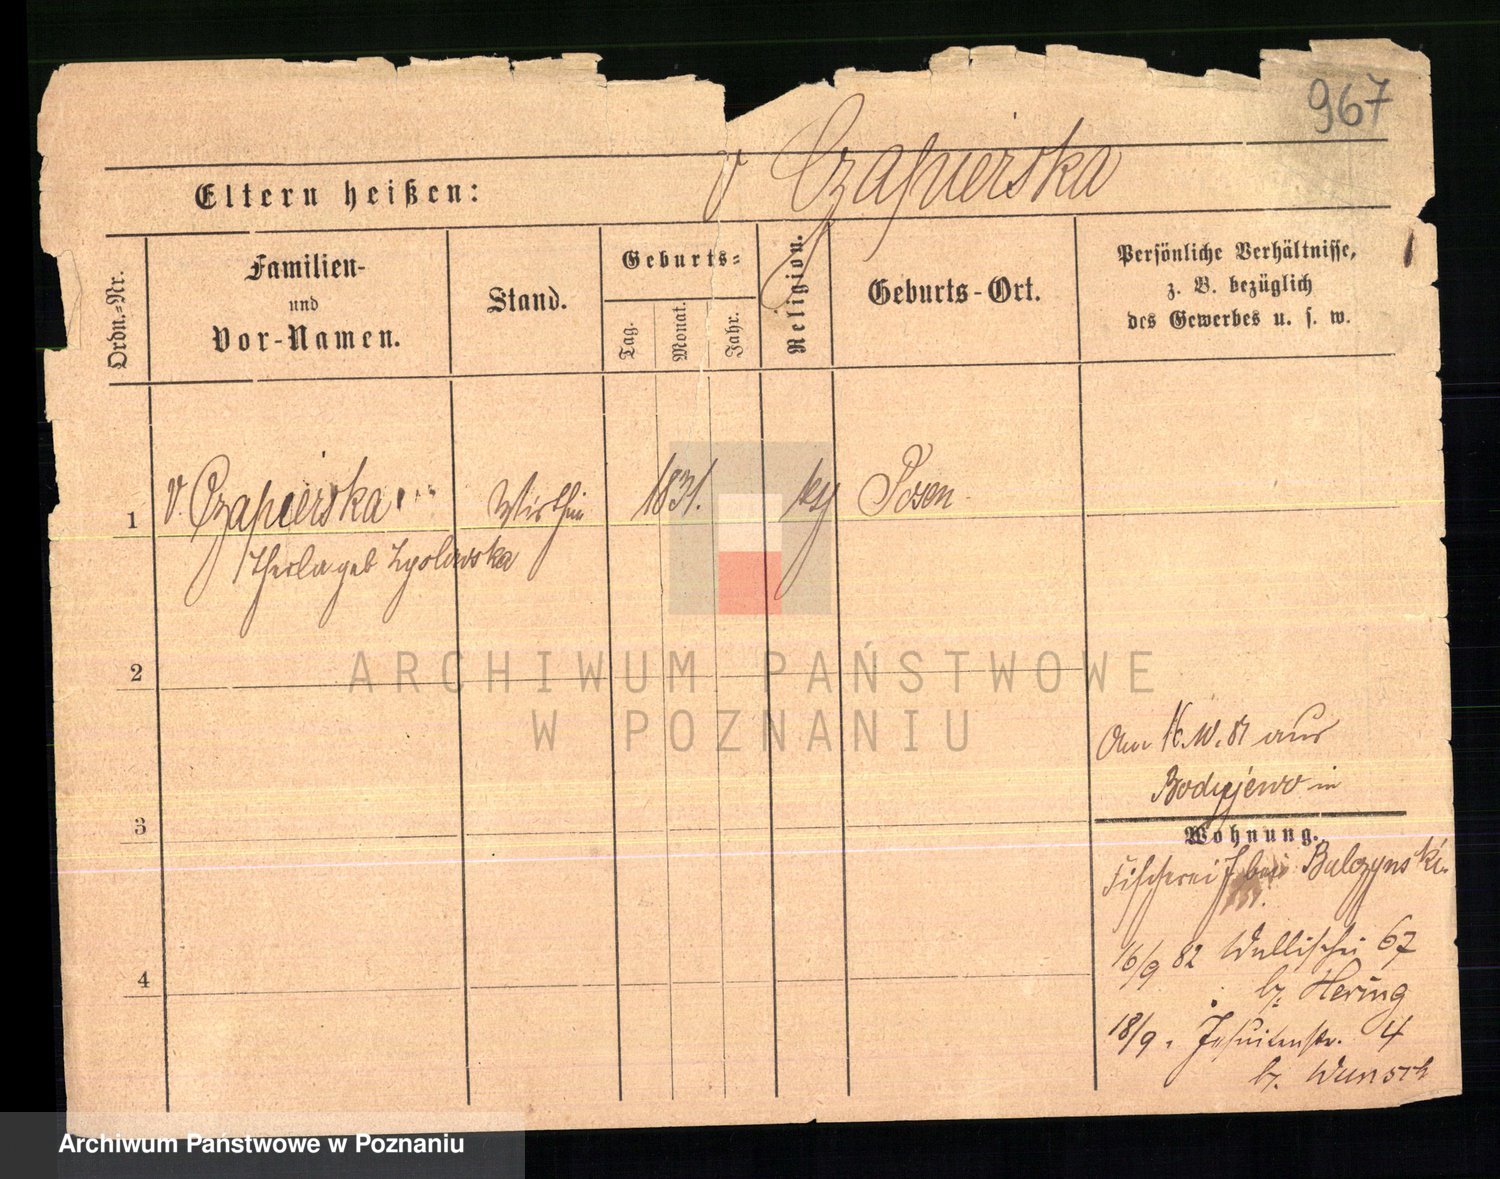 967
Eltern heißen:
v Czapierska
Ordn.-Nr.
Familien-
und
Vor-Namen.
Stand.
Geburts-
Tag.
Monat.
Jahr.
Religion.
Geburts-Ort.
Persönliche Verhältnisse,
z. B. bezüglich
des Gewerbes u. s. w.
1
v. Czapierska
Thecla geb
Wirthin
1831.
Posen
ARCHIWUM PAŃSTWOWE
W POZNANIU
2
3
4
aus
in
Wohnung.
Fischerei 7 bei Balczynski.
16/9 82 Wallischei 67
b. Hering
18/9 " Jesuitenstr. 4
b. Wunsch
Archiwum Państwowe w Poznaniu